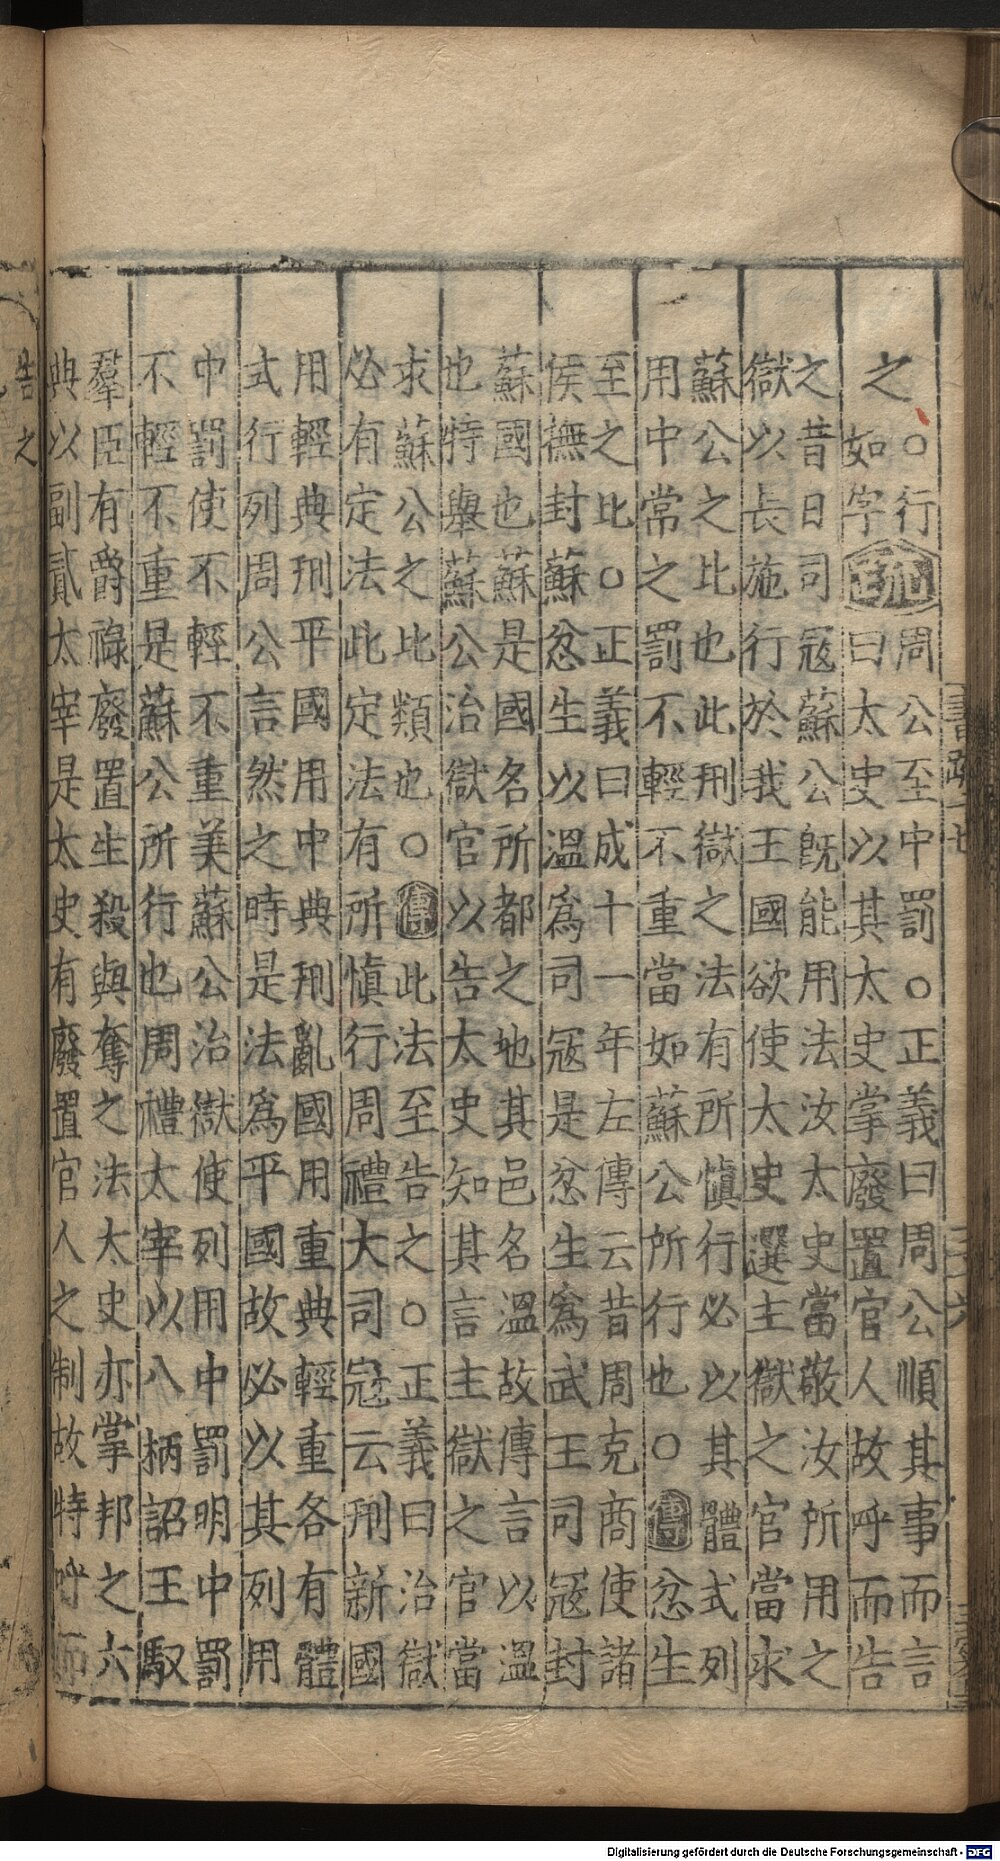 之○行如字疏周公至中罰○正義曰周公順其事而言
曰太史以其太史掌廢置官人故呼而告
之昔日司寇蘇公既能用法汝太史當敬汝所用之
獄以長施行於我王國欲使太史選主獄之官當求
蘇公之比也此刑獄之法有所愼行必以其體式列
用中常之罰不輕不重當如蘇公所行也○傳忿生
至之比○正義曰成十一年左傳云昔周克商使諸
侯撫封蘇忿生以溫爲司寇是忿生爲武王司寇封
蘇國也蘇是國名所都之地其邑名溫故傳言以溫
也特舉蘇公治獄官以告太史知其言主獄之官當
求蘇公之比類也○傳此法至告之○正義曰治獄
必有定法此定法有所愼行周禮大司寇云刑新國
用輕典刑平國用中典刑亂國用重典輕重各有體
式行列周公言然之時是法爲平國故必以其列用
中罰使不輕不重美蘇公治獄使列用中罰明中罰
不輕不重是蘇公所行也周禮太宰以八柄詔王馭
羣臣有爵祿廢置生殺與奪之法太史亦掌邦之六
典以副貳太宰是太史有廢置官人之制故特呼而
告之
Digitalisierung gefördert durch die Deutsche Forschungsgemeinschaft - DFG